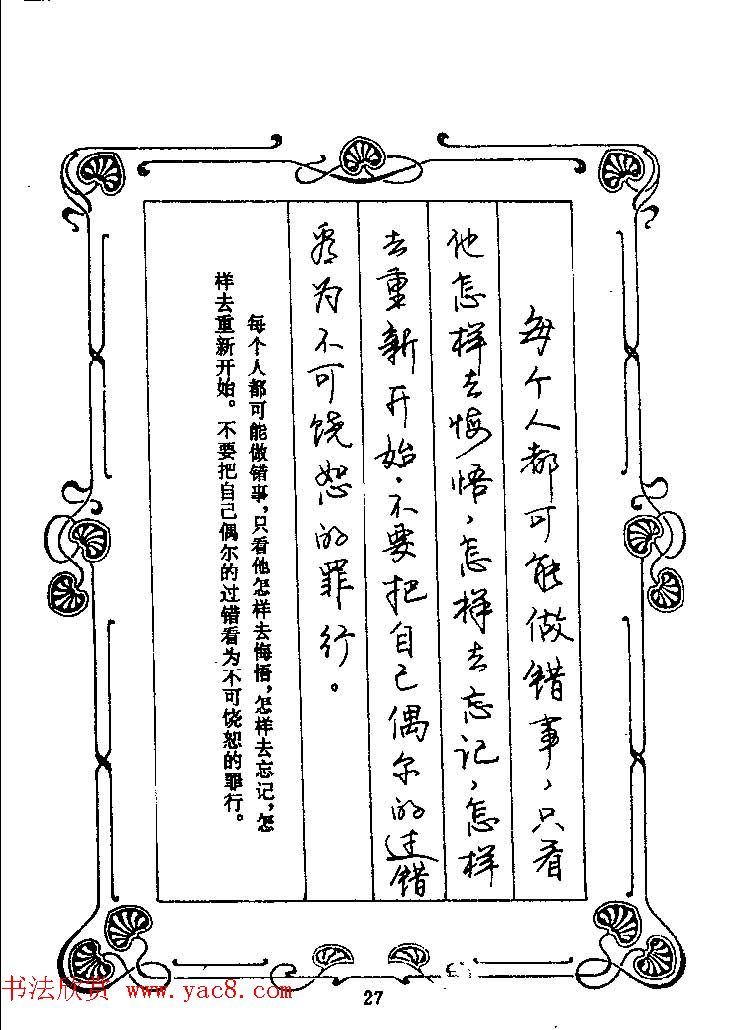 每个人都可能做错事，只看
他怎样去悔悟，怎样去忘记，怎样
去重新开始。不要把自己偶尔的过错
看为不可饶恕的罪行。
每个人都可能做错事，只看他怎样去悔悟，怎样去忘记，怎
样去重新开始。不要把自己偶尔的过错看为不可饶恕的罪行。
书法欣赏 www.yac8.com
27